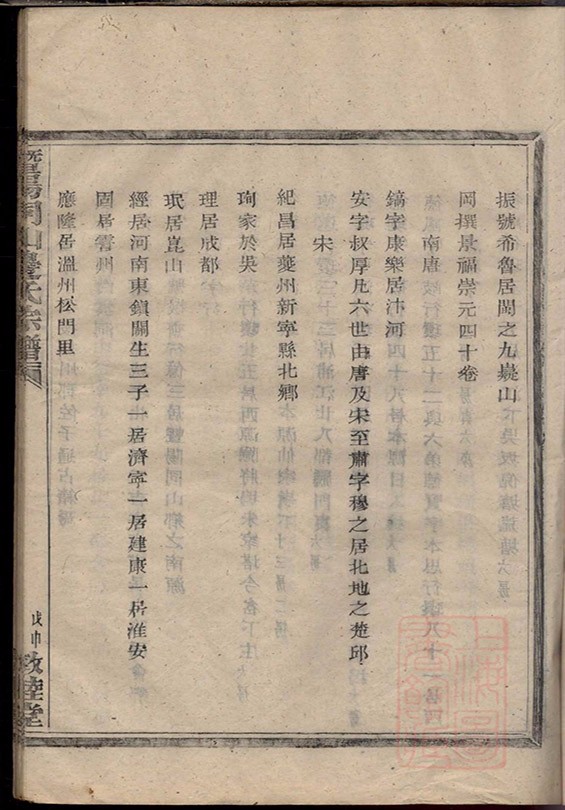 振號希魯居閩之九嶷山
岡撰景福崇元四十卷
南唐
鎬字康樂居汴河
安字叔厚凡六世由唐及宋至肅字穆之居北地之楚邱
宋
紀昌居夔州新寧縣北鄉
珣家於吳
理居成都
珉居崑山
經居河南東鎮關生三子一居濟寧一居建康一居淮安
固居霅州
應隆邑溫州松門里
暨陽同山邊氏宗譜
戊申
敦睦堂